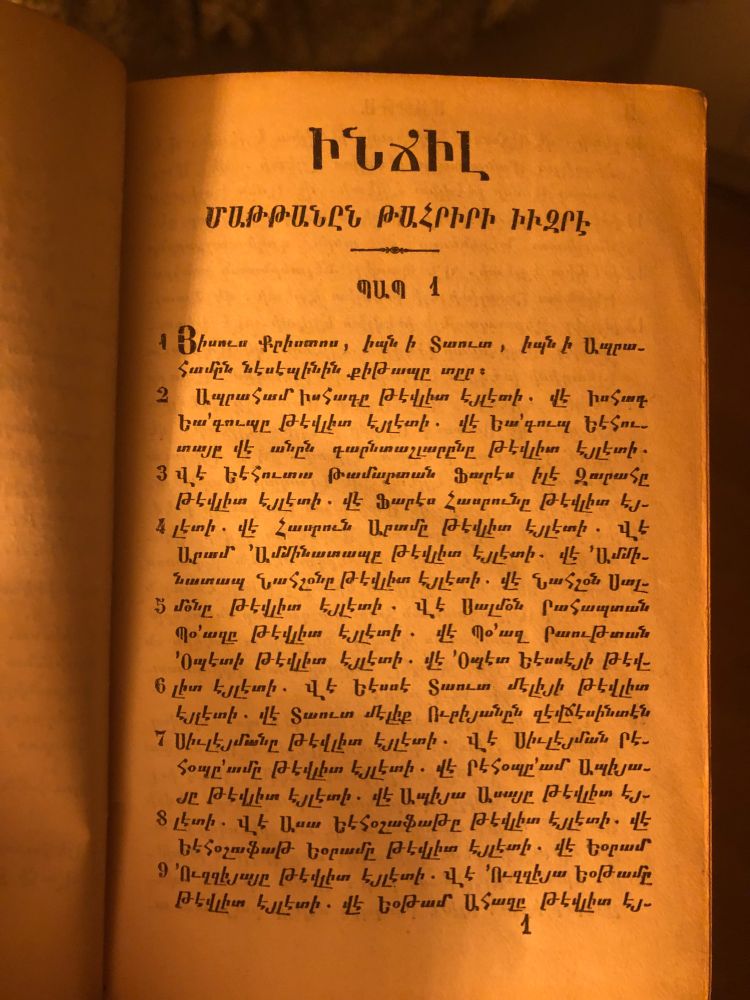 ԻՆՃԻԼ
ՄԱԹԹԱՆԸՆ ԹԱՀՐԻՐԻ ԻՒԶՐԷ
ՊԱՊ 1
1 Յիսուս Քրիստոս, իպն ի Տաուտ, իպն ի Ապրա-
համըն նէսէպինին քիթապը տըր։
2 Ապրահամ Իսհագը թէվլիտ էյլէտի. վէ Իսհագ
Եա՚գուպը թէվլիտ էյլէտի. վէ Եա՚գուպ Եէհու-
տայը վէ անըն գարնտաշլարընը թէվլիտ էյլէտի.
3 Վէ Եէհուտա Թամարտան Ֆարէս իլէ Զարահը
թէվլիտ էյլէտի. վէ Ֆարէս Հասրունը թէվլիտ էյ-
4 լէտի. վէ Հասրուն Արամը թէվլիտ էյլէտի. Վէ
Արամ ՚Ամմինատապը թէվլիտ էյլէտի. վէ ՚Ամմի-
նատապ Նահշօնը թէվլիտ էյլէտի. վէ Նահշօն Սալ-
5 մօնը թէվլիտ էյլէտի. Վէ Սալմօն Րահապտան
Պօ՚ազը թէվլիտ էյլէտի. վէ Պօ՚ազ Րաութտան
՚Օպետի թէվլիտ էյլէտի. վէ ՚Օպէտ Եէսսէյի թէվ-
6 լիտ էյլէտի. Վէ Եէսսէ Տաուտ մէլիյի թէվլիտ
էյլէտի. վէ Տաուտ մէլիք Ուրիյանըն զէվճէսինտէն
7 Սիւլէյմանը թէվլիտ էյլէտի. Վէ Սիւլէյման Րէ-
հօպը՚ամը թէվլիտ էյլէտի. վէ Րէհօպը՚ամ Ապիյա-
յը թէվլիտ էյլէտի. վէ Ապիյա Ասայը թէվլիտ էյ-
8 լէտի. Վէ Ասա Եէհօշաֆաթը թէվլիտ էյլէտի. վէ
Եէհօշաֆաթ Եօրամը թէվլիտ էյլէտի. վէ Եօրամ
9 ՚Ուզզիյայը թէվլիտ էյլէտի. Վէ ՚Ուզզիյա Եօթամը
թէվլիտ էյլէտի. վէ Եօթամ Ահազը թէվլիտ էյ-
1